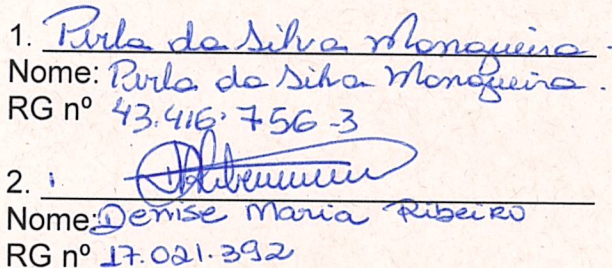 1. Perla da Silva Mangueira.
Nome: Perla da Silva Mangueira.
RG nº 43.416.756-3
2.
Nome: Denise Maria Ribeiro
RG nº 17.021.392